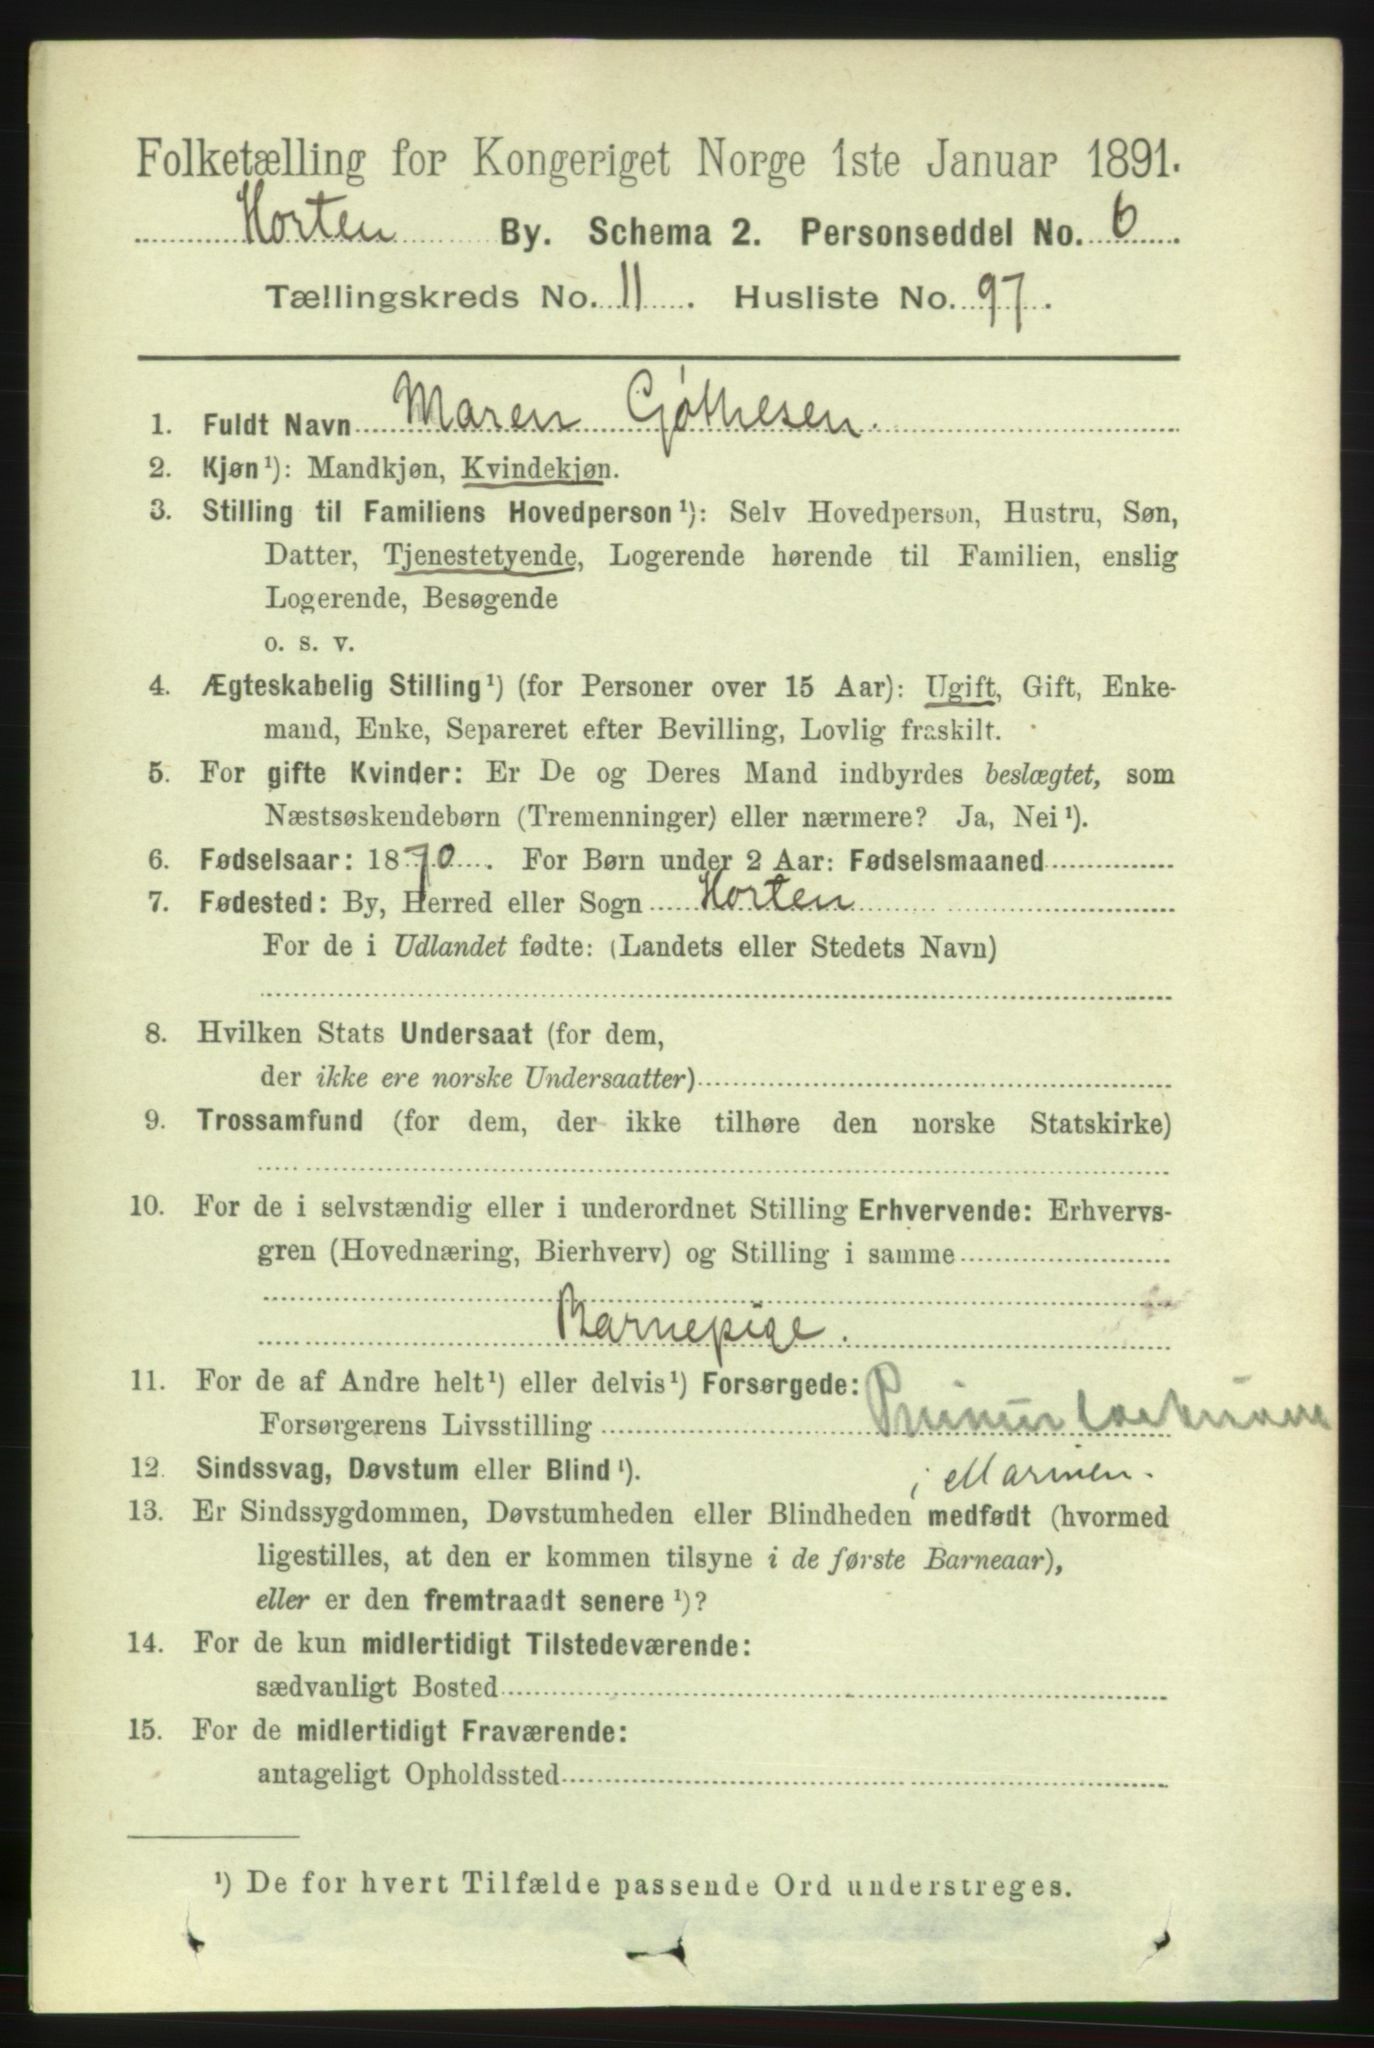 Folketælling for Kongeriget Norge 1ste Januar 1891.
Horten By. Schema 2. Personseddel No. 6
Tællingskreds No. 11. Husliste No. 97.
1. Fuldt Navn Maren Gjøthesen.
2. Kjøn¹): Mandkjøn, Kvindekjøn.
3. Stilling til Familiens Hovedperson¹): Selv Hovedperson, Hustru, Søn,
Datter, Tjenestetyende, Logerende hørende til Familien, enslig
Logerende, Besøgende
o. s. v.
4. Ægteskabelig Stilling¹) (for Personer over 15 Aar): Ugift, Gift, Enke-
mand, Enke, Separeret efter Bevilling, Lovlig fraskilt.
5. For gifte Kvinder: Er De og Deres Mand indbyrdes beslægtet, som
Næstsøskendebørn (Tremenninger) eller nærmere? Ja, Nei¹).
6. Fødselsaar: 1870. For Børn under 2 Aar: Fødselsmaaned
7. Fødested: By, Herred eller Sogn Horten
For de i Udlandet fødte: (Landets eller Stedets Navn)
8. Hvilken Stats Undersaat (for dem,
der ikke ere norske Undersaatter)
9. Trossamfund (for dem, der ikke tilhøre den norske Statskirke)
10. For de i selvstændig eller i underordnet Stilling Erhvervende: Erhvervs-
gren (Hovednæring, Bierhverv) og Stilling i samme
Barnepige.
11. For de af Andre helt¹) eller delvis¹) Forsørgede:
Forsørgerens Livsstilling
12. Sindssvag, Døvstum eller Blind¹). i Marinen.
13. Er Sindssygdommen, Døvstumheden eller Blindheden medfødt (hvormed
ligestilles, at den er kommen tilsyne i de første Barneaar),
eller er den fremtraadt senere¹)?
14. For de kun midlertidigt Tilstedeværende:
sædvanligt Bosted
15. For de midlertidigt Fraværende:
antageligt Opholdssted
¹) De for hvert Tilfælde passende Ord understreges.